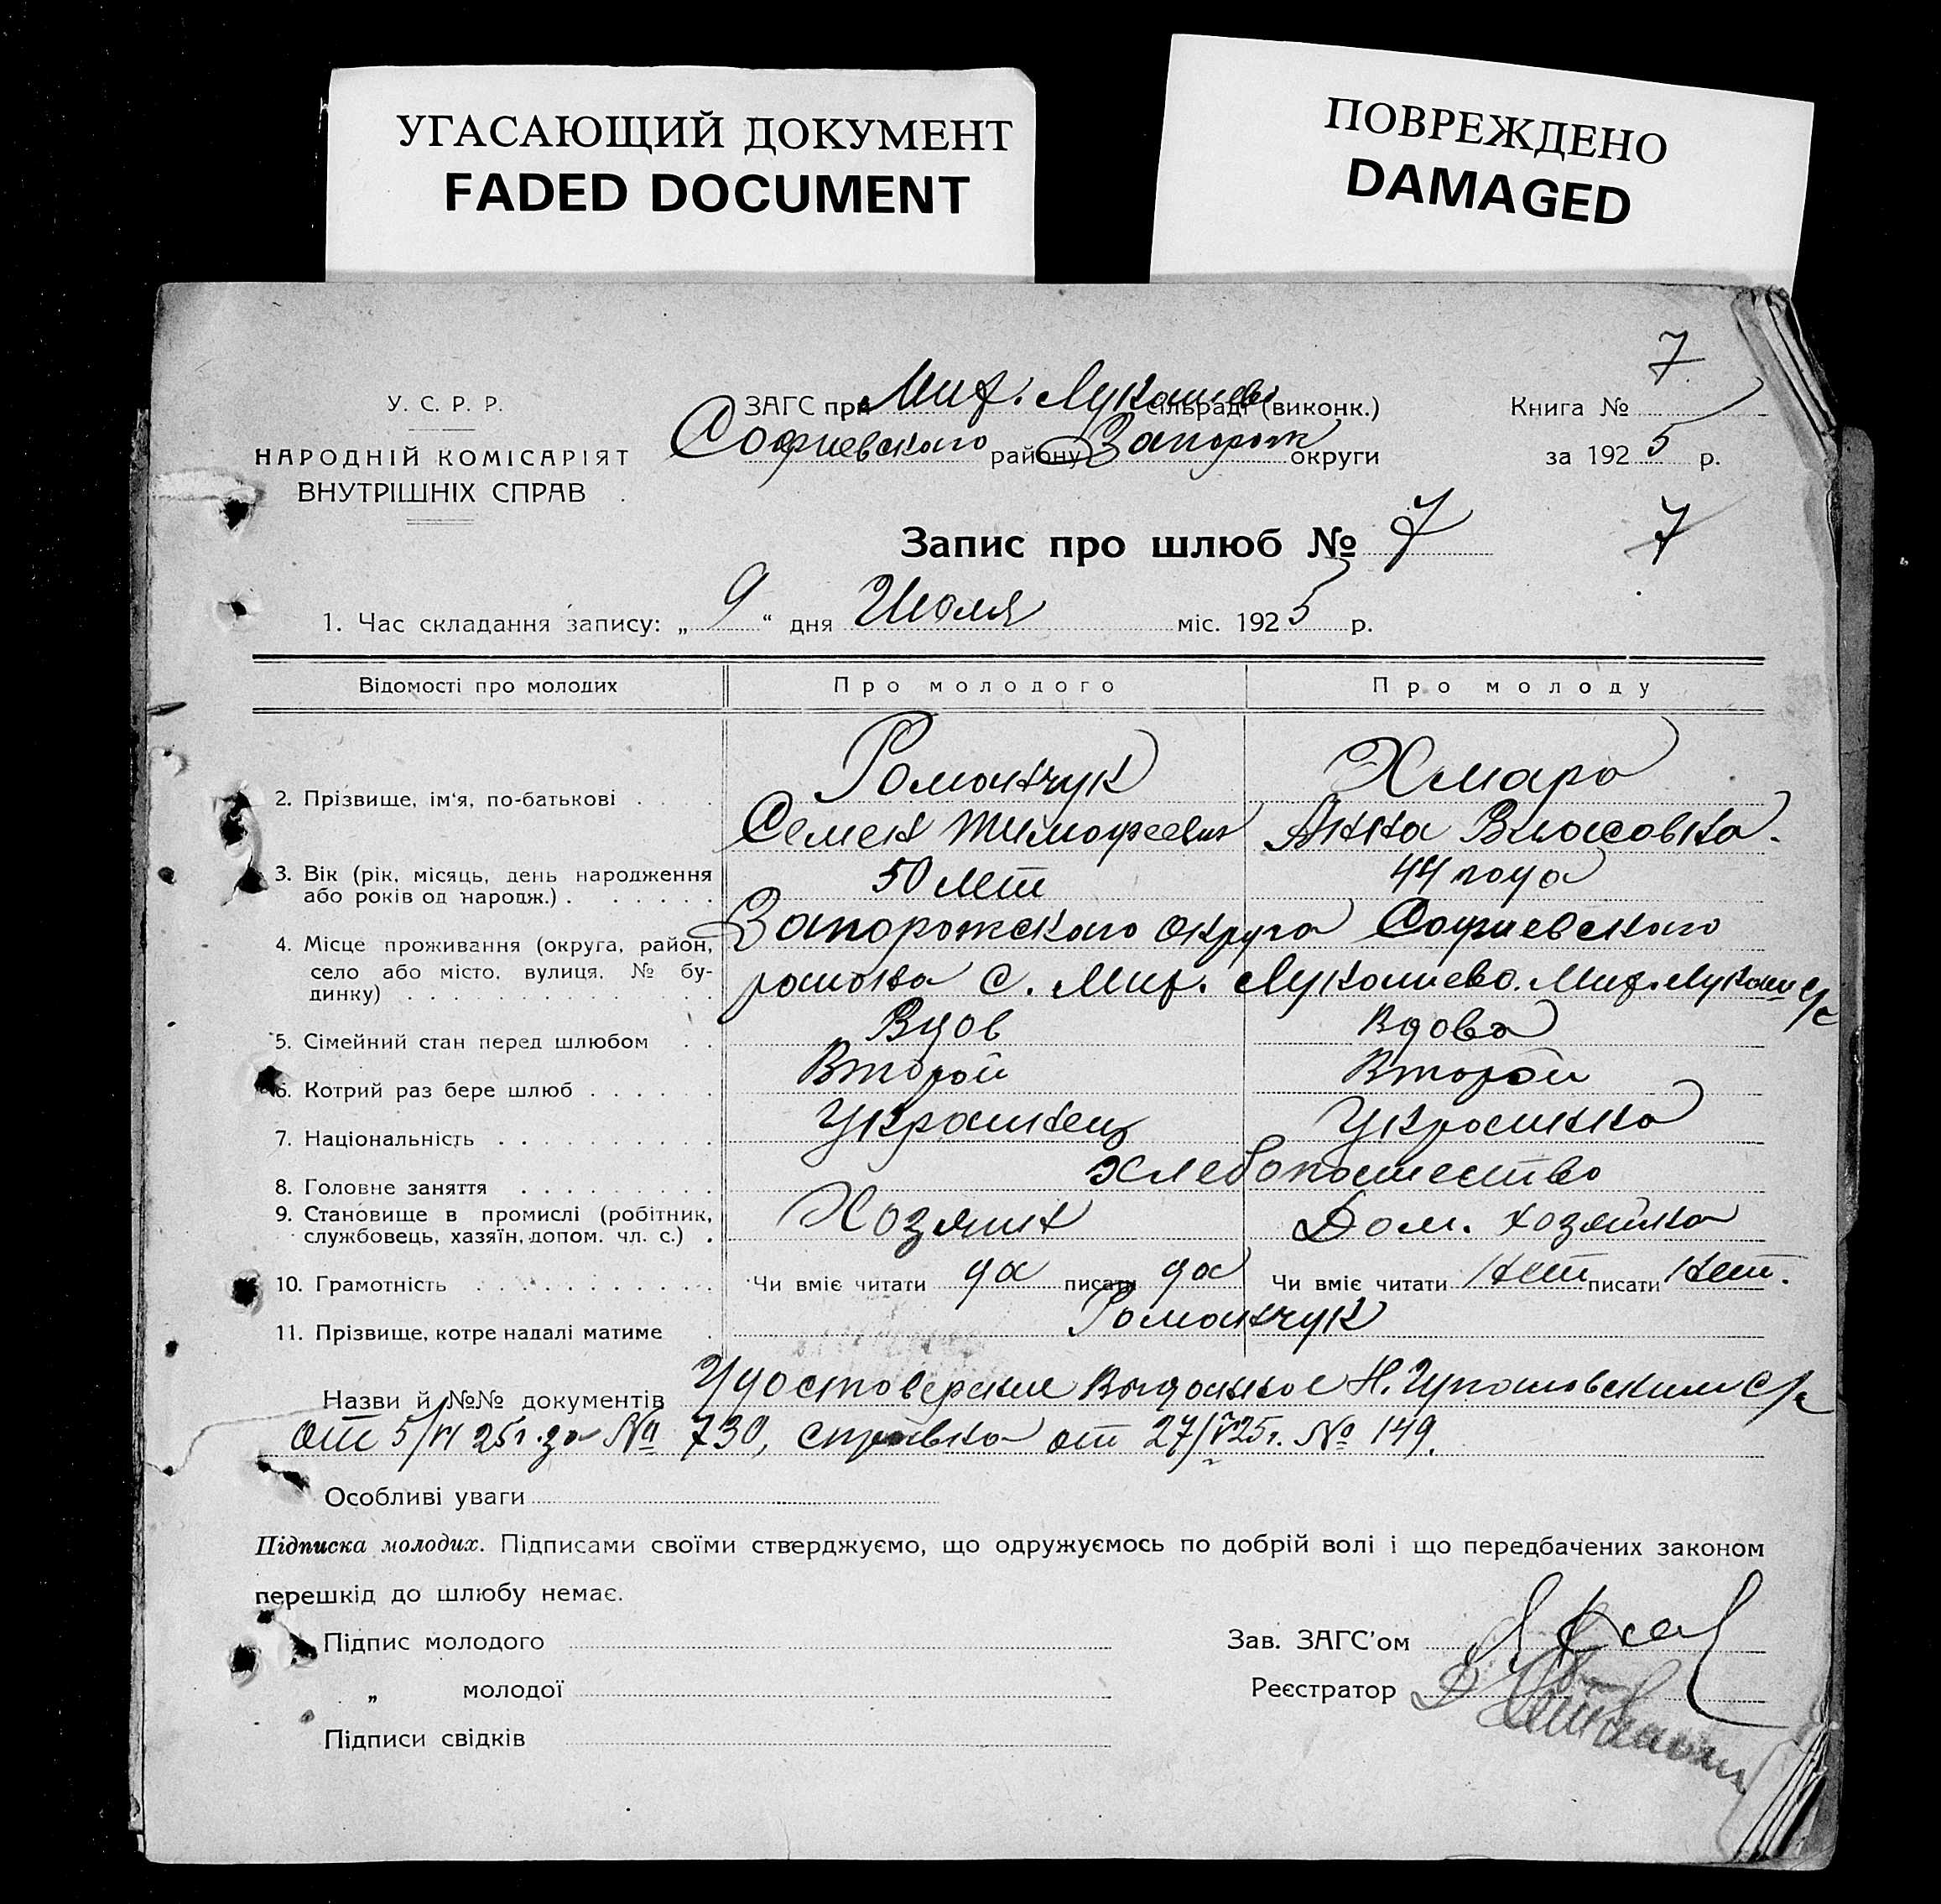 УГАСАЮЩИЙ ДОКУМЕНТ
FADED DOCUMENT
ПОВРЕЖДЕНО
DAMAGED
7
У. С. Р. Р.
НАРОДНІЙ КОМІСАРІЯТ
ВНУТРІШНІХ СПРАВ
ЗАГС при Миф. Лукашево сільраді (виконк.)
Софиевского району Запорож округи
Книга №
за 1925 р.
Запис про шлюб № 7
7
1. Час складання запису: „ 9 “ дня Июля міс. 1925 р.
Відомості про молодих Про молодого Про молоду
2. Прізвище, ім'я, по-батькові Романчук Хмара
Семен Тимофеевич Анна Власовна.
3. Вік (рік, місяць, день народження 50 лет 44 года
або років од народж.)
4. Місце проживання (округа, район, Запорожского округа Софиевского
село або місто, вулиця, № бу- района с. Миф. Лукашево. Миф. Лукаш с/с
динку)
5. Сімейний стан перед шлюбом Вдов Вдова
6. Котрий раз бере шлюб Второй Второй
7. Національність Украинец Украинка
8. Головне заняття Хлебопашество
9. Становище в промислі (робітник, Хозяин Дом. хозяйка
службовець, хазяїн, допом. чл. с.)
10. Грамотність Чи вміє читати да писати да Чи вміє читати нет писати нет.
11. Прізвище, котре надалі матиме Романчук
Назви й №№ документів Удостоверение Выданное с/с
от 5/VI 25г. за № 730, справка от 27/V 25г. № 149.
Особливі уваги
Підписка молодих. Підписами своїми стверджуємо, що одружуємось по добрій волі і що передбачених законом
перешкід до шлюбу немає.
Підпис молодого
„ молодої
Підписи свідків
Зав. ЗАГС'ом
Реєстратор